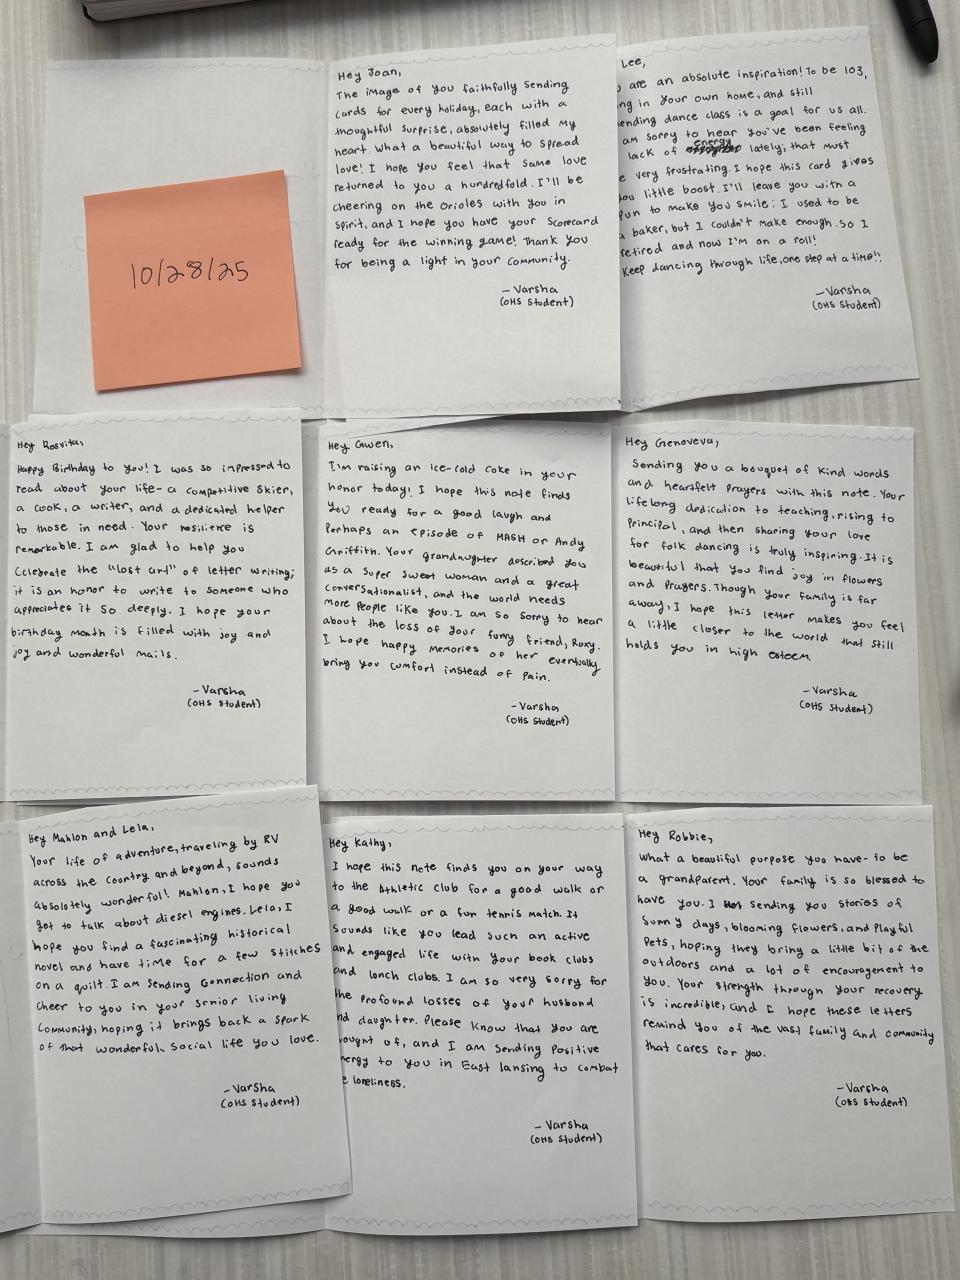 10/28/25
Hey Joan,
The image of you faithfully sending
cards for every holiday, each with a
thoughtful surprise, absolutely filled my
heart. What a beautiful way to spread
love! I hope you feel that same love
returned to you a hundredfold. I'll be
cheering on the Orioles with you in
spirit, and I hope you have your scorecard
ready for the winning game! Thank you
for being a light in your community.
- Varsha
(OHS Student)
Lee,
are an absolute inspiration! To be 103,
ng in your own home, and still
ending dance class is a goal for us all.
am sorry to hear you've been feeling
lack of energy lately; that must
e very frustrating. I hope this card gives
you little boost. I'll leave you with a
pun to make you smile: I used to be
a baker, but I couldn't make enough. So I
retired and now I'm on a roll!
Keep dancing through life, one step at a time!!
- Varsha
(OHS Student)
Hey Rosvita,
Happy Birthday to you! I was so impressed to
read about your life- a competitive skier,
a cook, a writer, and a dedicated helper
to those in need. Your resilience is
remarkable. I am glad to help you
celebrate the "lost art" of letter writing;
it is an honor to write to someone who
appreciates it so deeply. I hope your
birthday month is filled with joy and
joy and wonderful mails.
- Varsha
(OHS Student)
Hey Gwen,
I'm raising an ice-cold coke in your
honor today! I hope this note finds
you ready for a good laugh and
perhaps an episode of MASH or Andy
Griffith. Your grandaughter described you
as a super sweet woman and a great
conversationalist, and the world needs
more people like you. I am so sorry to hear
about the loss of your furry friend, Roxy.
I hope happy memories of her eventually
bring you comfort instead of pain.
- Varsha
(OHS Student)
Hey Genoveva,
Sending you a bouquet of kind words
and heartfelt prayers with this note. Your
lifelong dedication to teaching, rising to
principal, and then sharing your love
for folk dancing is truly inspiring. It is
beautiful that you find joy in flowers
and prayers. Though your family is far
away, I hope this letter makes you feel
a little closer to the world that still
holds you in high esteem.
- Varsha
(OHS Student)
Hey Mahlon and Lela,
Your life of adventure, traveling by RV
across the country and beyond, sounds
absolutely wonderful! Mahlon, I hope you
get to talk about diesel engines. Lela, I
hope you find a fascinating historical
novel and have time for a few stitches
on a quilt. I am sending connection and
cheer to you in your senior living
community, hoping it brings back a spark
of that wonderful social life you love.
- Varsha
(OHS Student)
Hey Kathy,
I hope this note finds you on your way
to the Athletic club for a good walk or
a good walk or a fun tennis match. It
sounds like you lead such an active
and engaged life with your book clubs
and lunch clubs. I am so very sorry for
the profound losses of your husband
nd daughter. Please know that you are
hought of, and I am sending positive
nergy to you in East lansing to combat
e loneliness.
- Varsha
(OHS Student)
Hey Robbie,
What a beautiful purpose you have- to be
a grandparent. Your family is so blessed to
have you. I sending you stories of
sunny days, blooming flowers, and playful
pets, hoping they bring a little bit of the
outdoors and a lot of encouragement to
you. Your strength through your recovery
is incredible, and I hope these letters
remind you of the vast family and community
that cares for you.
- Varsha
(OHS Student)